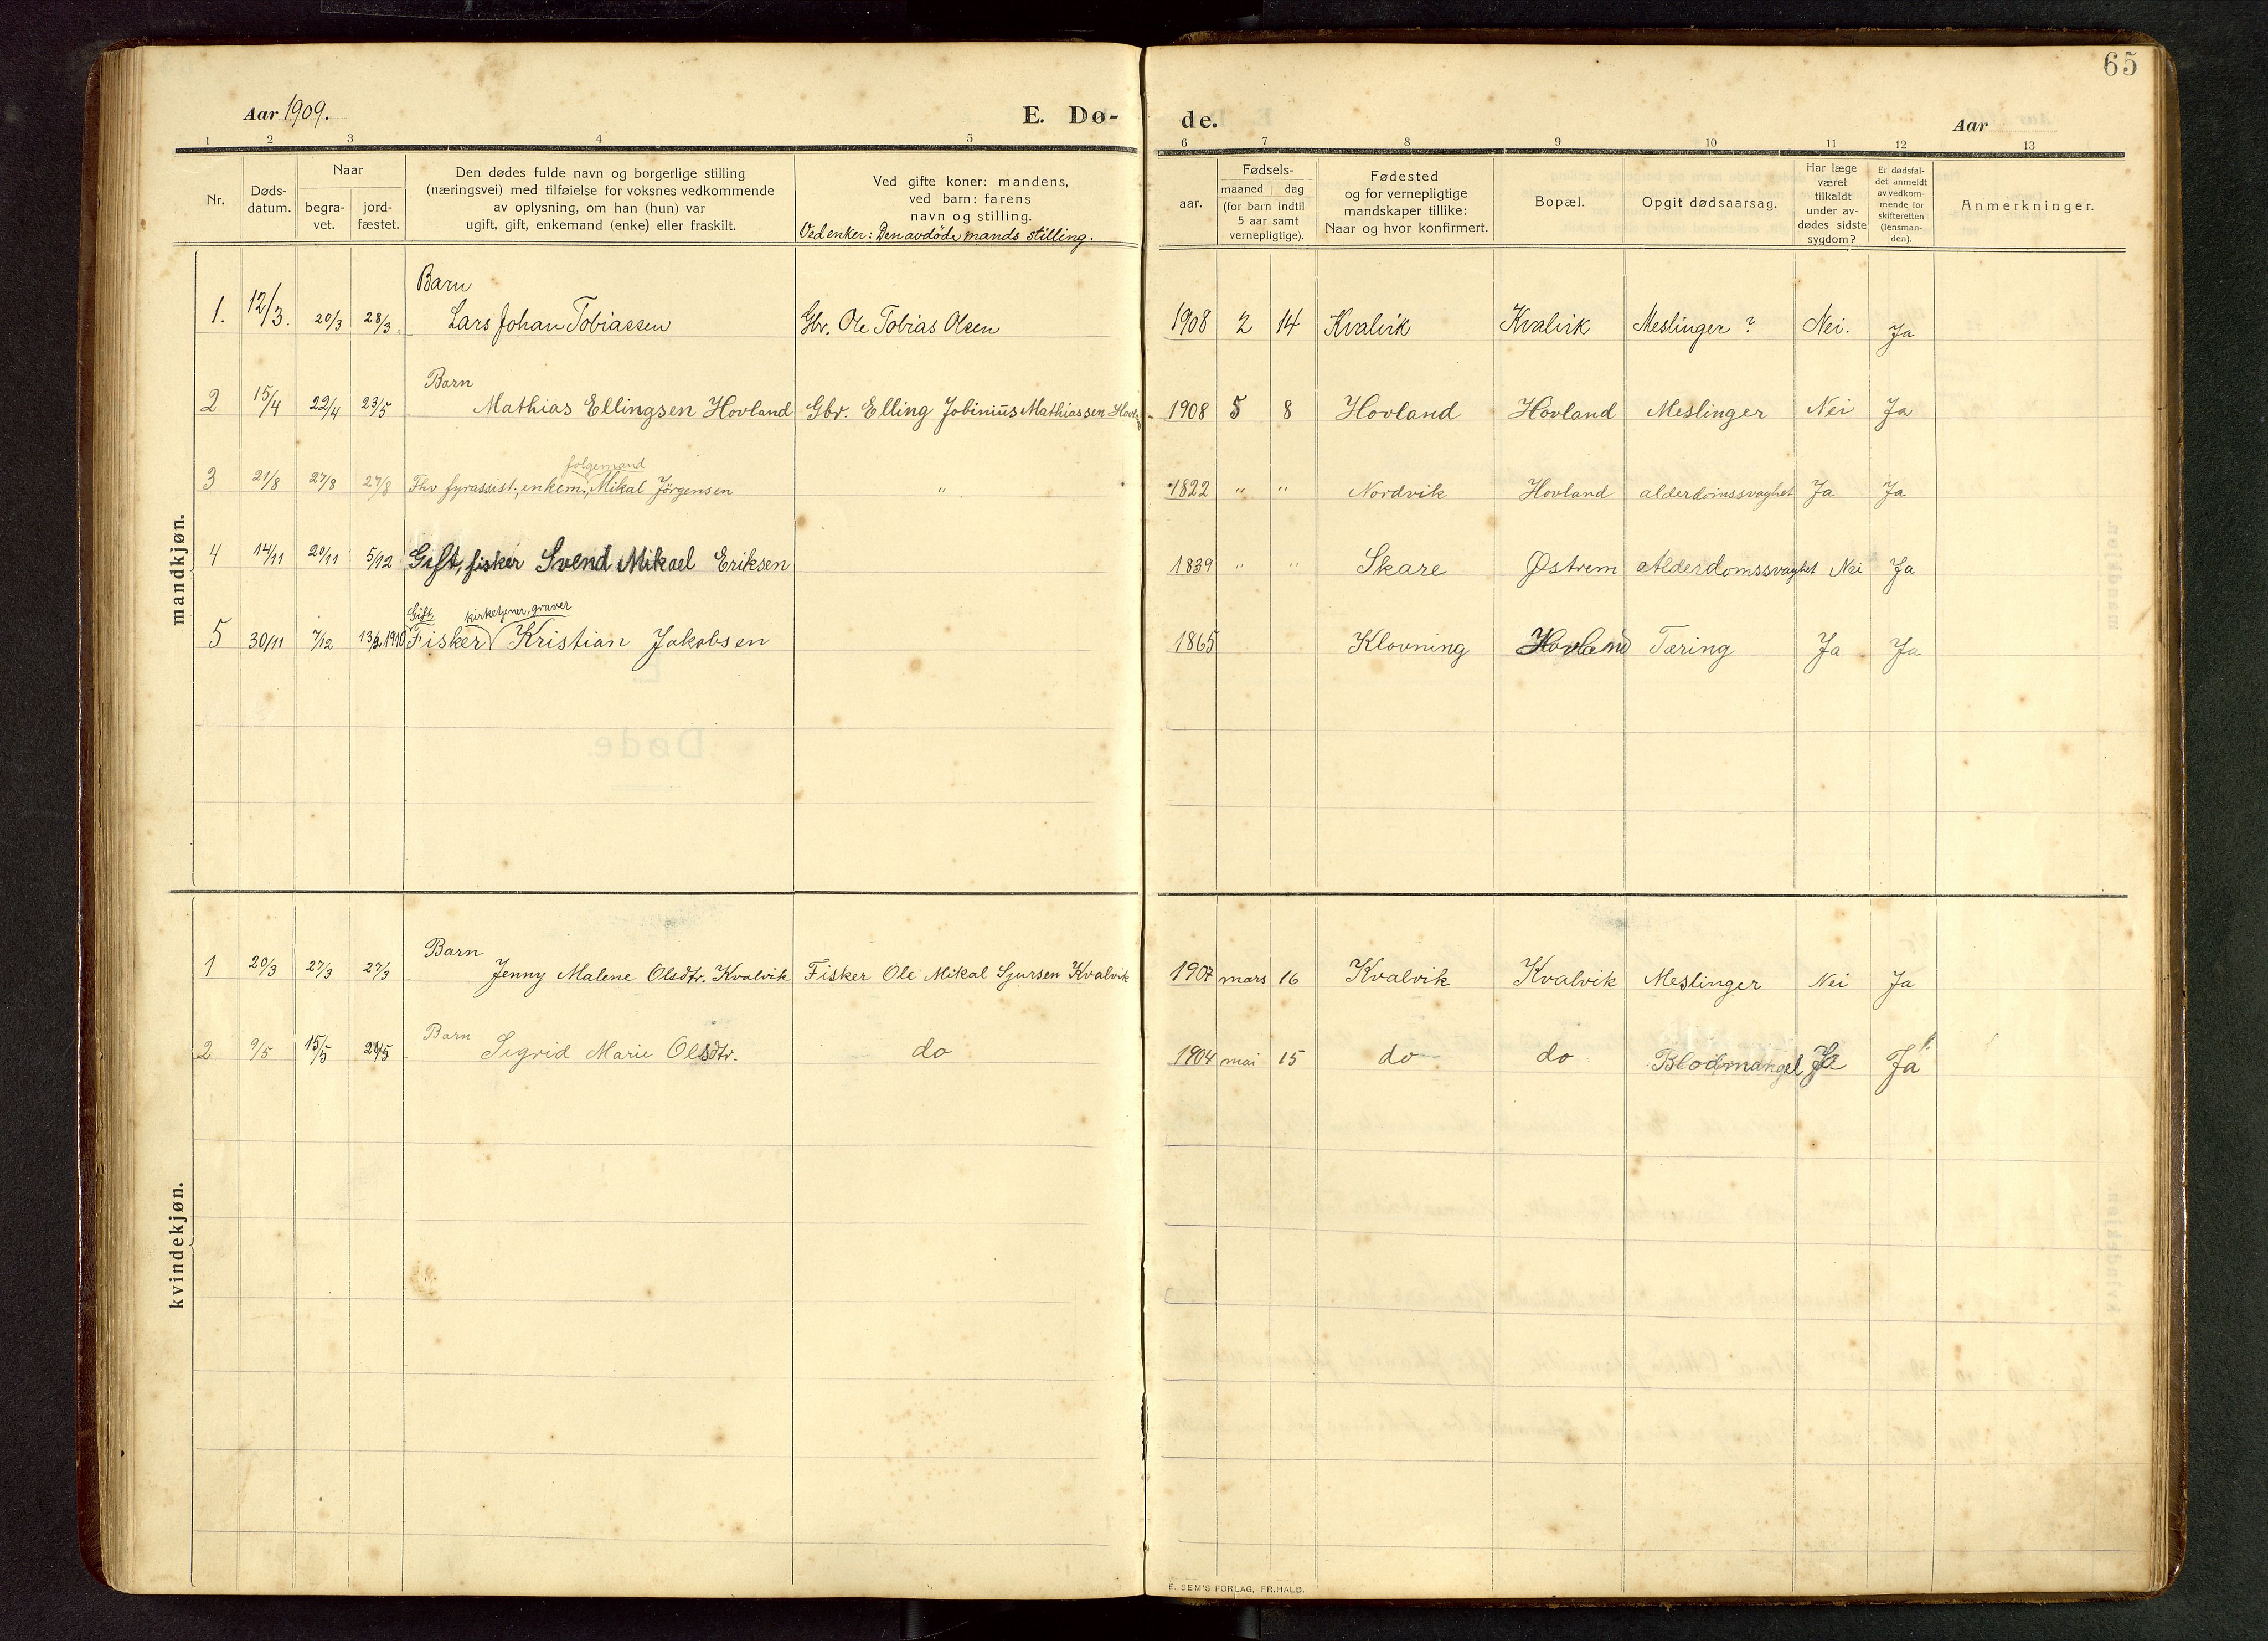 65
Aar 1909. E. Dø- de. Aar
1 2 3 4 5 6 7 8 9 10 11 12 13
Nr. Døds-datum. Naar begra-vet. jord-fæstet. Den dødes fulde navn og borgerlige stilling (næringsvei) med tilføielse for voksnes vedkommende av oplysning, om han (hun) var ugift, gift, enkemand (enke) eller fraskilt. Ved gifte koner: mandens, ved barn: farens navn og stilling. Ved enker: Den avdøde mands stilling. Fødsels- aar. maaned dag (for barn indtil 5 aar samt vernepligtige). Fødested og for vernepligtige mandskaper tillike: Naar og hvor konfirmert. Bopæl. Opgit dødsaarsag. Har læge været tilkaldt under av-dødes sidste sygdom? Er dødsfal-det anmeldt av vedkom-mende for skifteretten (lensman-den). Anmerkninger.
mandkjøn.
Barn
1. 12/3. 20/3 28/3 Lars Johan Tobiassen Gbr. Ole Tobias Olsen 1908 2 14 Kvalvik Kvalvik Meslinger ? Nei. Ja
Barn
2 15/4 22/4 23/5 Mathias Ellingsen Hovland Gbr. Elling Jobinius Mathiassen 1908 5 8 Hovland Hovland Meslinger Nei Ja
folgemand
3 21/8 27/8 27/8 Fhv fyrassist., enkem., Mikal Jörgensen " 1822 " " Nordvik Hovland alderdomssvaghet Ja Ja
4 14/11 20/11 5/12 Gift, fisker Svend Mikael Eriksen 1839 " " Skare Østrem Alderdomssvaghet Nei Ja
Gift. kirketjener, graver
5 30/11 7/12 1910 Fisker Kristian Jakobsen 1865 Klovning Hovland Tæring Ja Ja
kvindekjøn.
Barn
1 20/3 27/3 27/3 Jenny Malene Olsdtr. Kvalvik Fisker Ole Mikal Sjursen Kvalvik 1907 mars 16 Kvalvik Kvalvik Meslinger Nei Ja
Barn
2 9/5 15/5 Sigrid Marie Olsdtr. do 1904 mai 15 do do Blodmangel Ja Ja
E. SEM'S FORLAG, FR.HALD.